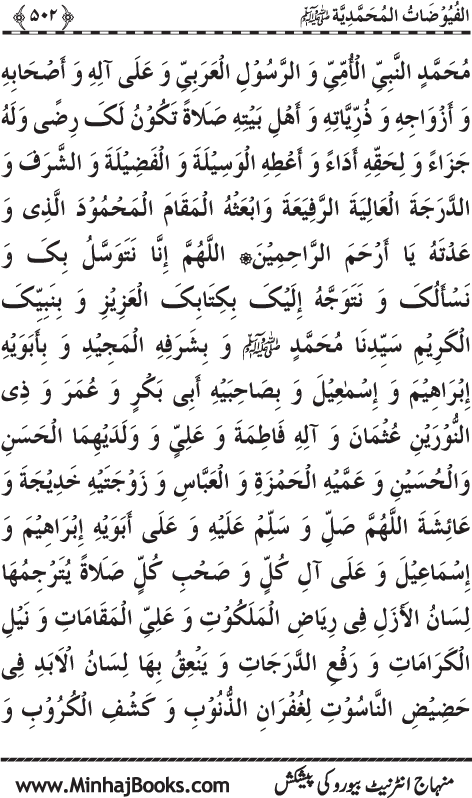 الفُيُوْضَاتُ المُحَمَّدِيَّة ﷺ ﴿۵۰۲﴾
مُحَمَّدٍ النَّبِيِّ الْأُمِّيِّ وَ الرَّسُوْلِ الْعَرَبِيِّ وَ عَلَى آلِهِ وَ أَصْحَابِهِ
وَ أَزْوَاجِهِ وَ ذُرِّيَّاتِهِ وَ أَهْلِ بَيْتِهِ صَلَاةً تَكُوْنُ لَکَ رِضًى وَلَهُ
جَزَاءً وَ لِحَقِّهِ أَدَاءً وَ أَعْطِهِ الْوَسِيْلَةَ وَ الْفَضِيْلَةَ وَ الشَّرَفَ وَ
الدَّرَجَةَ الْعَالِيَةَ الرَّفِيْعَةَ وَابْعَثْهُ الْمَقَامَ الْمَحْمُوْدَ الَّذِی وَ
عَدْتَهُ يَا أَرْحَمَ الرَّاحِمِيْنَ۞ اللَّهُمَّ إِنَّا نَتَوَسَّلُ بِکَ وَ
نَسْأَلُکَ وَ نَتَوَجَّهُ إِلَيْکَ بِكِتَابِکَ الْعَزِيْزِ وَ بِنَبِيِّکَ
الْكَرِيْمِ سَيِّدِنَا مُحَمَّدٍ ﷺ وَ بِشَرَفِهِ الْمَجِيْدِ وَ بِأَبَوَيْهِ
إِبْرَاهِيْمَ وَ إِسْمٰعِيْلَ وَ بِصَاحِبَيْهِ أَبِی بَكْرٍ وَ عُمَرَ وَ ذِی
النُّوْرَيْنِ عُثْمَانَ وَ آلِهِ فَاطِمَةَ وَ عَلِيٍّ وَ وَلَدَيْهِمَا الْحَسَنِ
وَالْحُسَيْنِ وَ عَمَّيْهِ الْحَمْزَةِ وَ الْعَبَّاسِ وَ زَوْجَتَيْهِ خَدِيْجَةَ وَ
عَائِشَةَ اللَّهُمَّ صَلِّ وَ سَلِّمْ عَلَيْهِ وَ عَلَى أَبَوَيْهِ إِبْرَاهِيْمَ وَ
إِسْمَاعِيْلَ وَ عَلَى آلِ كُلٍّ وَ صَحْبِ كُلٍّ صَلَاةً يُتَرْجِمُهَا
لِسَانُ الْأَزَلِ فِی رِيَاضِ الْمَلَكُوْتِ وَ عَلِيِّ الْمَقَامَاتِ وَ نَيْلِ
الْكَرَامَاتِ وَ رَفْعِ الدَّرَجَاتِ وَ يَنْعِقُ بِهَا لِسَانُ الْأَبَدِ فِی
حَضِيْضِ النَّاسُوْتِ لِغُفْرَانِ الذُّنُوْبِ وَ كَشْفِ الْكُرُوْبِ وَ
منہاج انٹرنیٹ بیورو کی پیشکش www.MinhajBooks.com